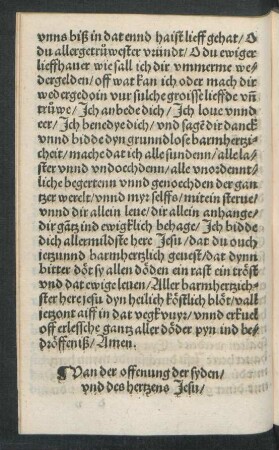 vnns biß in dat ennd haist lieff gehat/ O
du allergetrüwester vründt/ O du ewiger
lieffhauer wie sall ich dir vmmerme we-
dergelden/ off wat kan ich oder mach dir
wedergedoin vur sulche groisse lieffde vñ
trüwe/ Ich anbede dich/ Ich loue vnnd
eer/ Ich benedye dich/ vnd sagē dir danck
vnnd bidde dyn grundlose barmhertzi-
cheit/ mache dat ich alle sundenn/ alle la-
ster vnnd vndoechdenn/ alle vnordennt-
liche begertenn vnnd genoechden der gan
tzer werelt/ vnnd myr selffs/ mit ein sterue/
vnnd dir allein leue/ dir allein anhange/
dir gātz ind ewigklich behage/ Ich bidde
dich allermildste here Jesu/ dat du ouch
jetzunnd barmhertzlich geuest/ dat dynn
bitter döt sy allen döden ein rast ein tröst
vnd dat ewige leuen/ Aller barmhertzich-
ster here jesu dyn heilich köstlich blöt/ valk
jetzont aiff in dat vegkvuyr/ vnnd erkuck
off erlessche gantz aller döder pyn ind be-
dröffeniß/ Amen.
Van der offenung der syden/
vnd des hertzens Jesu/